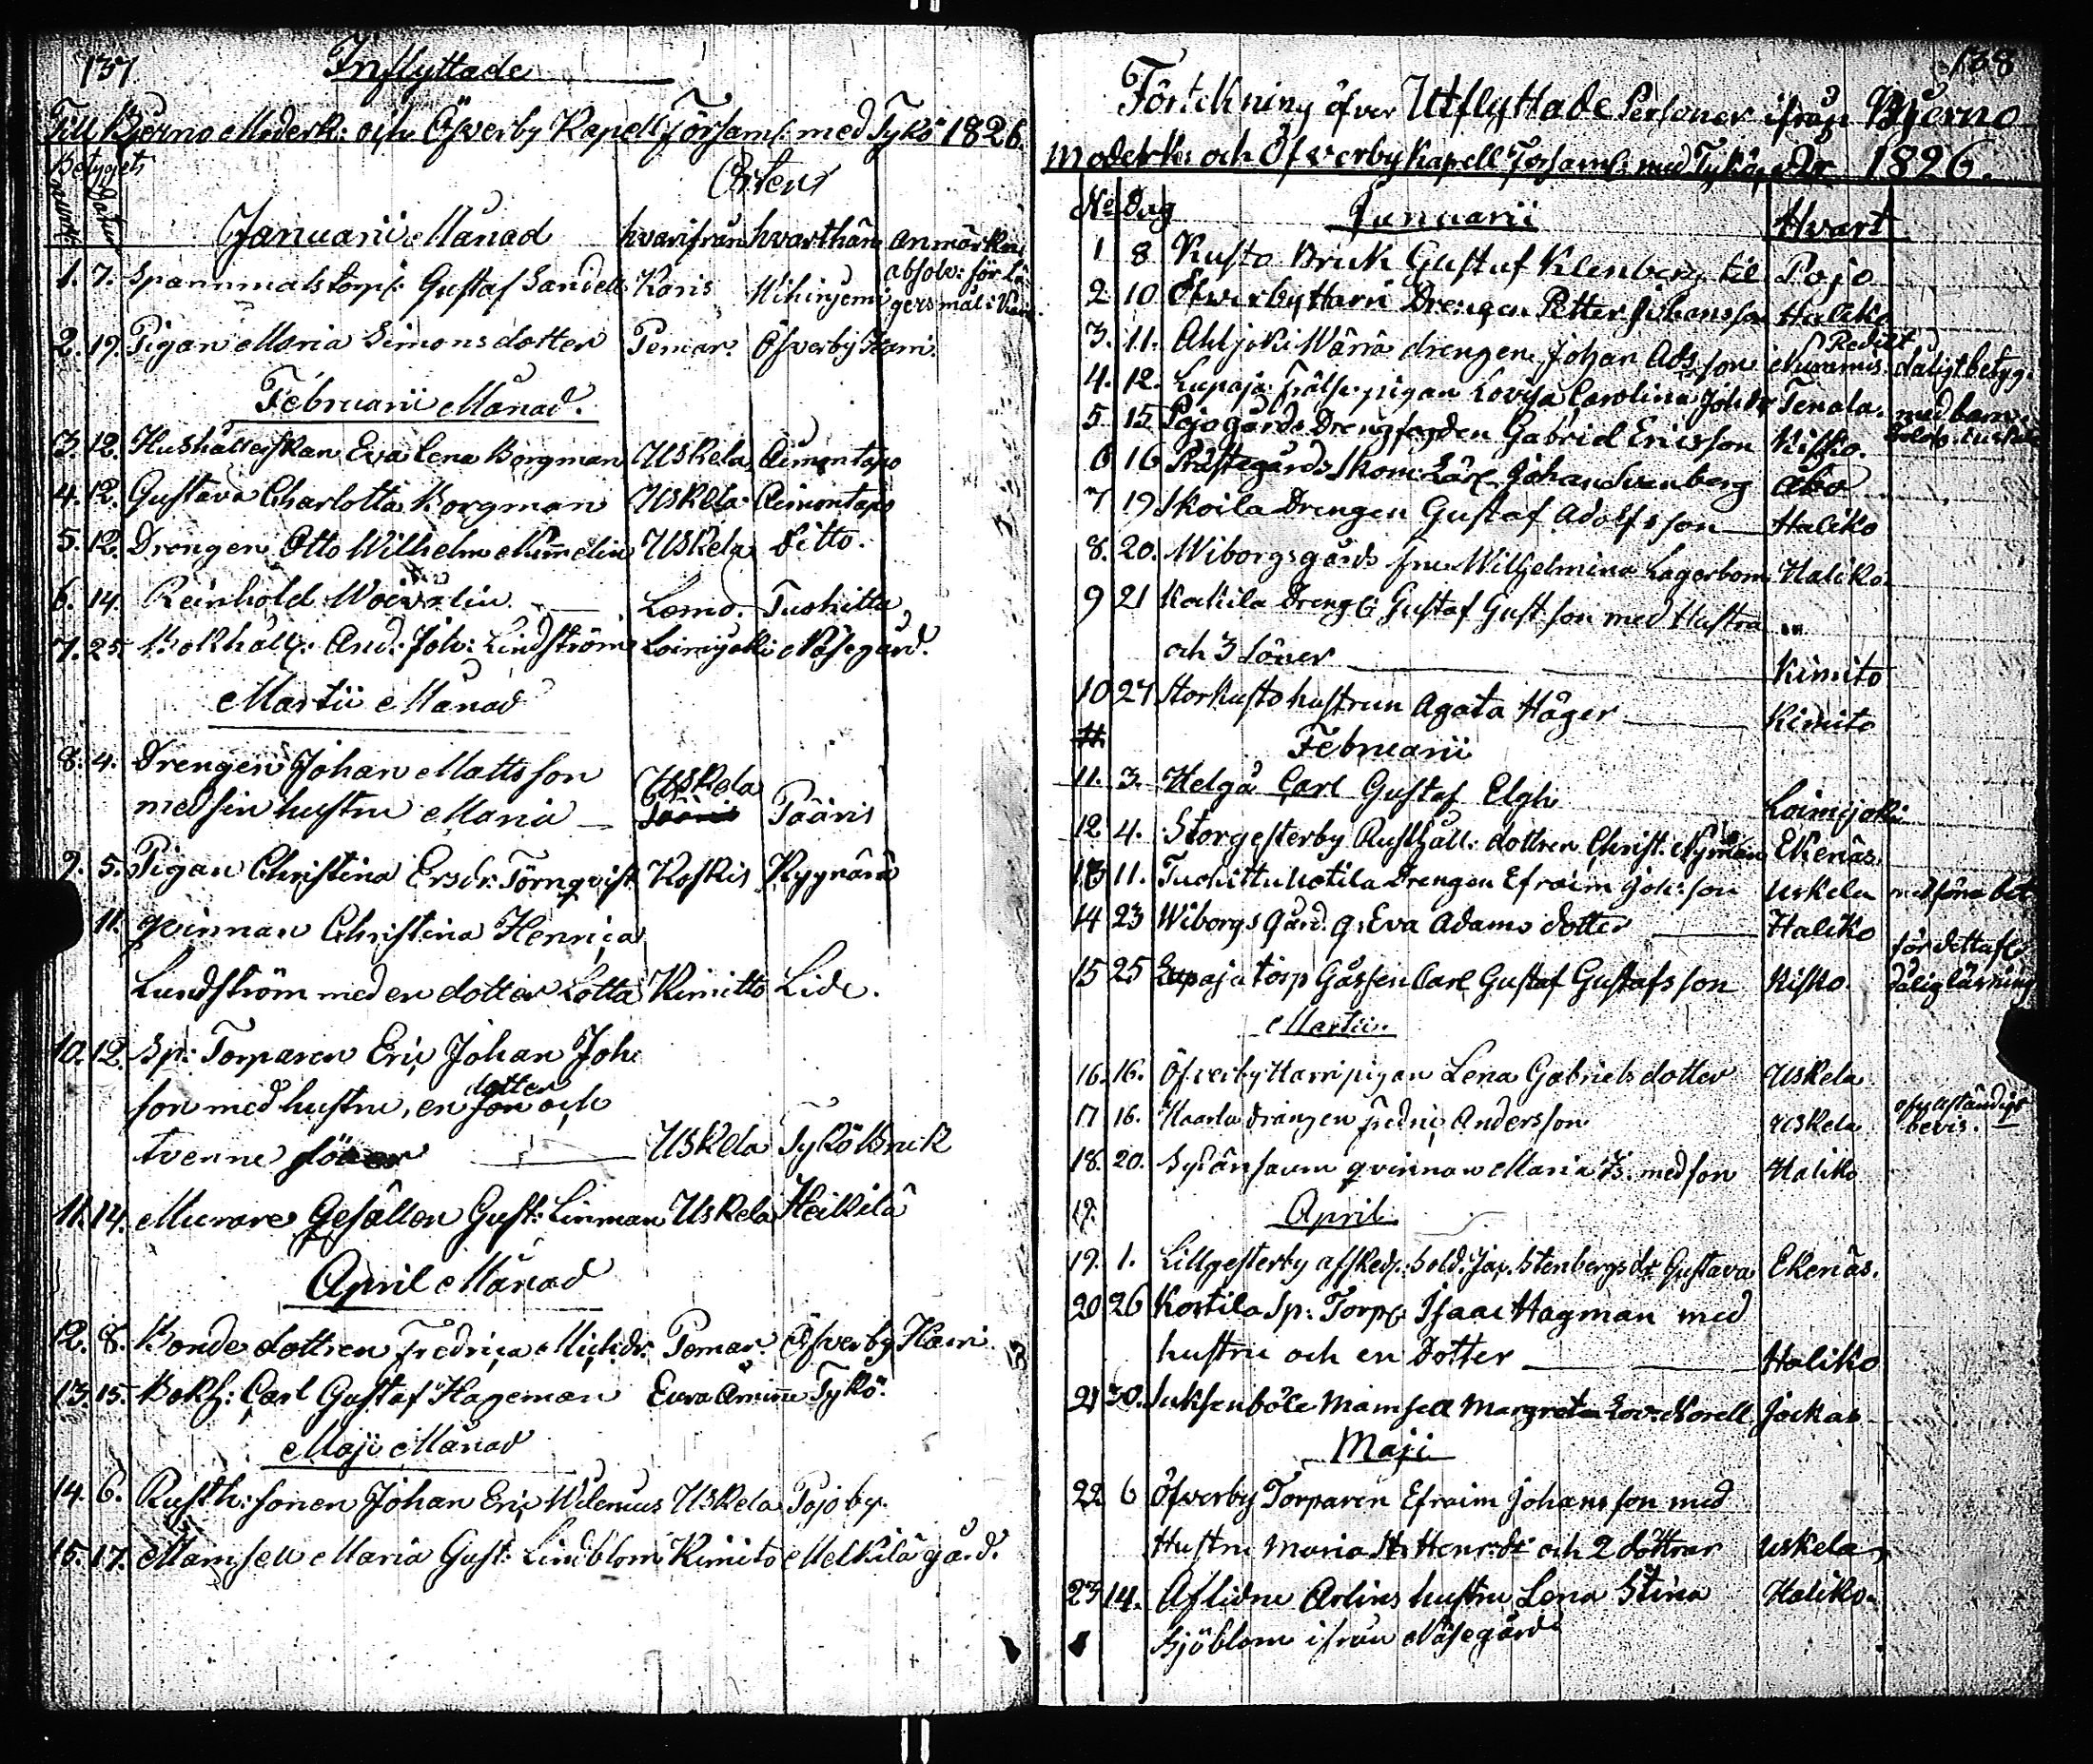 137
Inflyttade
Till Bjerno Moderk: och Öfverby Kapell Församl: med Tykö 1826.
Betygets
Datum
Orten
Januarii Månad hvarifrån hvarthän Anmärkn:
1. 7. Spannmåls torp: Gustaf Sandell Karis absolv: för Lä-
gersmål i
2. 19. Pigan Maria Simonsdotter Pemar. Öfverby Harri
Februarii Månad.
3. 12. Hushållerskan Eva Lena Borgman Uskela
4. 12. Gustava Charlotta Borgman Uskela
5. 12. Drengen Otto Wilhelm Uskela ditto.
6. 14. Reinhold Lomo. Tuohittu
7. 25. Bokhåll: And: Joh: Lindström Loimijoki Näsegård.
Martii Månad
8. 4. Drengen Johan Mattsson
med sin hustru Maria Uskela Pääris
9. 5. Pigan Christina Ersdr: Törnqvist Koskis
11. qvinnan Christina Henrica
Lundström med en dotter Lotta Kimitto Lide.
10. 12. Sp: Torparen Eric Johan Joh
dotter
son med hustru, en son och
tvenne söner Uskela Tykö Bruk
11. 14. Murare Gesällen Gust: Linman Uskela Heikilä
April Månad
12. 8. Bonde dottren Fredrica Mich:dr: Pemar. Öfverby Harri.
13. 15. Bokh: Carl Gustaf Hageman Tykö.
Maji Månad
14. 6. Rusth: sonen Johan Eric Wilenius Uskela Pojoby.
15. 17. Mamsell Maria Gust: Lindblom Kimito Melkilä gård.
138
Förtekning öfver Utflyttade Personer ifrån Bjerno
Moderk: och Öfverby Kapell Församl: med Tykö, År 1826.
No Dag Januarii Hvart
1 8 Kusto Bruk Gustaf Klenberg til Pojo
2 10 Öfverby Harri Drengen Petter Johansson Haliko
3. 11. Ahljoki Wärrä drengen Johan Ads:son Nummis. dåligt betyg.
4. 12. Lupaja frälse pigan Lovisa Carolina Joh:dr Tenala. med barn.
5 15 Pojogårds Drengfogden Gabriel Ericsson Kisko.
6 16 Prästegårds Skom: Lärl: Johan Svenberg Åbo
7 19 Skoila Drengen Gustaf Adolfsson Haliko
8. 20. Wiborgsgårds fru Wilhelmina Lagerbom Haliko.
9 21 Kockila Dreng: Gustaf Gustson med Hustru
och 3 söner Kimito
10 27 Storkusto hustrun Agata Häger Kimito
Februarii
11. 3. Helgå Carl Gustaf Elgh Loimijoki
12 4. Storgesterby Rusthåll: dottren Christ: Nyman Ekenäs.
13 11. Tuohittu Uotila Drengen Efraim Joh:son Uskela
14 23 Wiborgs Gård. q: Eva Adams dotter Haliko
15 25 Lupaja torp Gåssen Carl Gustaf Gustafsson Kisko. dålig läsning
Martii.
16. 16. Öfverby Harri pigan Lena Gabrielsdotter Uskela
17 16. Kaarla drängen Fredric Andersson Uskela ofullständigt
bevis.
18. 20. Sydänsaum qvinnan Maria Is: med son Haliko
19. April
19. 1. Lillgesterby afsked: Sold: Jac. Stenbergs dr Gustava Ekenäs.
20 26 Kostila Sp: Torp: Isaac Hagman med
hustru och en Dotter Haliko
21 30. Suksenböle Mamsell Margreta Lov: Norell Jockas
Maji
22 6 Öfverby Torparen Efraim Johansson med
Hustru Maria St: Henr:dr och 2 döttrar Uskela
23 14. Aflidne Arlins hustru Lena Stina Haliko.
Sjöblom ifrån Näsegård